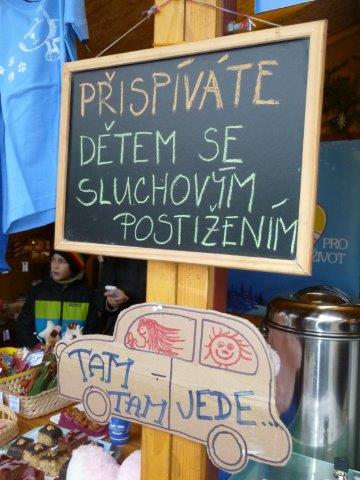 PŘISPÍVÁTE
DĚTEM SE
SLUCHOVÝM
POSTIŽENÍM
PRO
ŽIVOT
TAM
TAM JEDE...